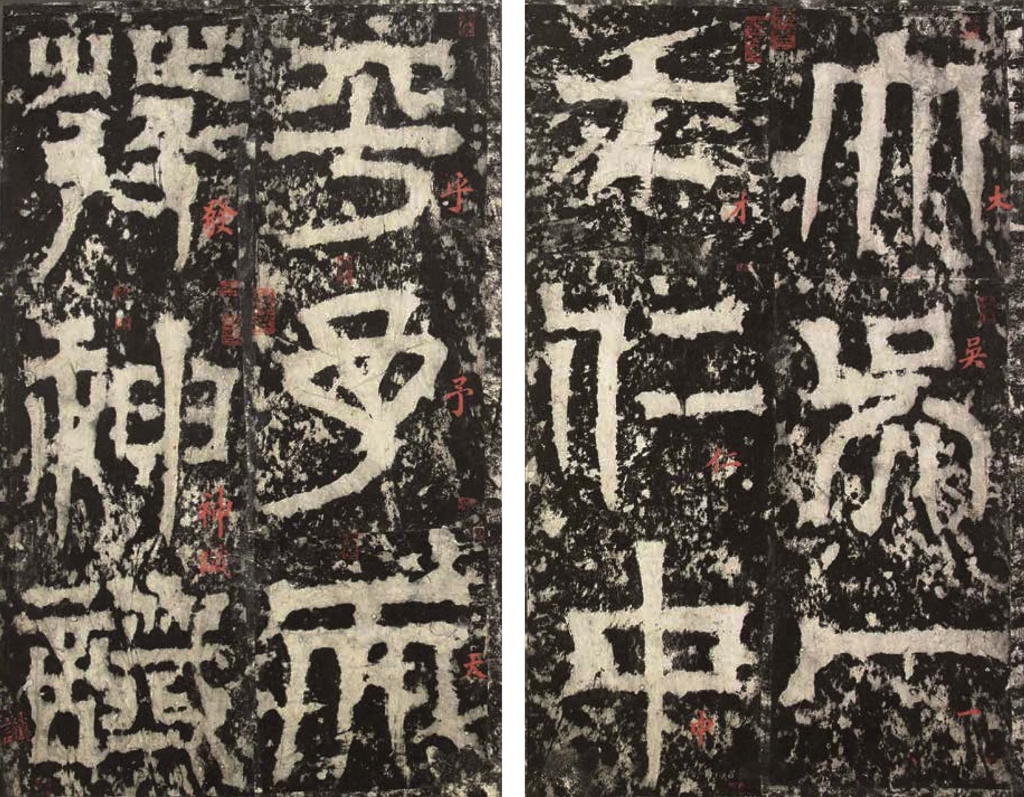 大吳一
才仁中
乎予天
發神讖